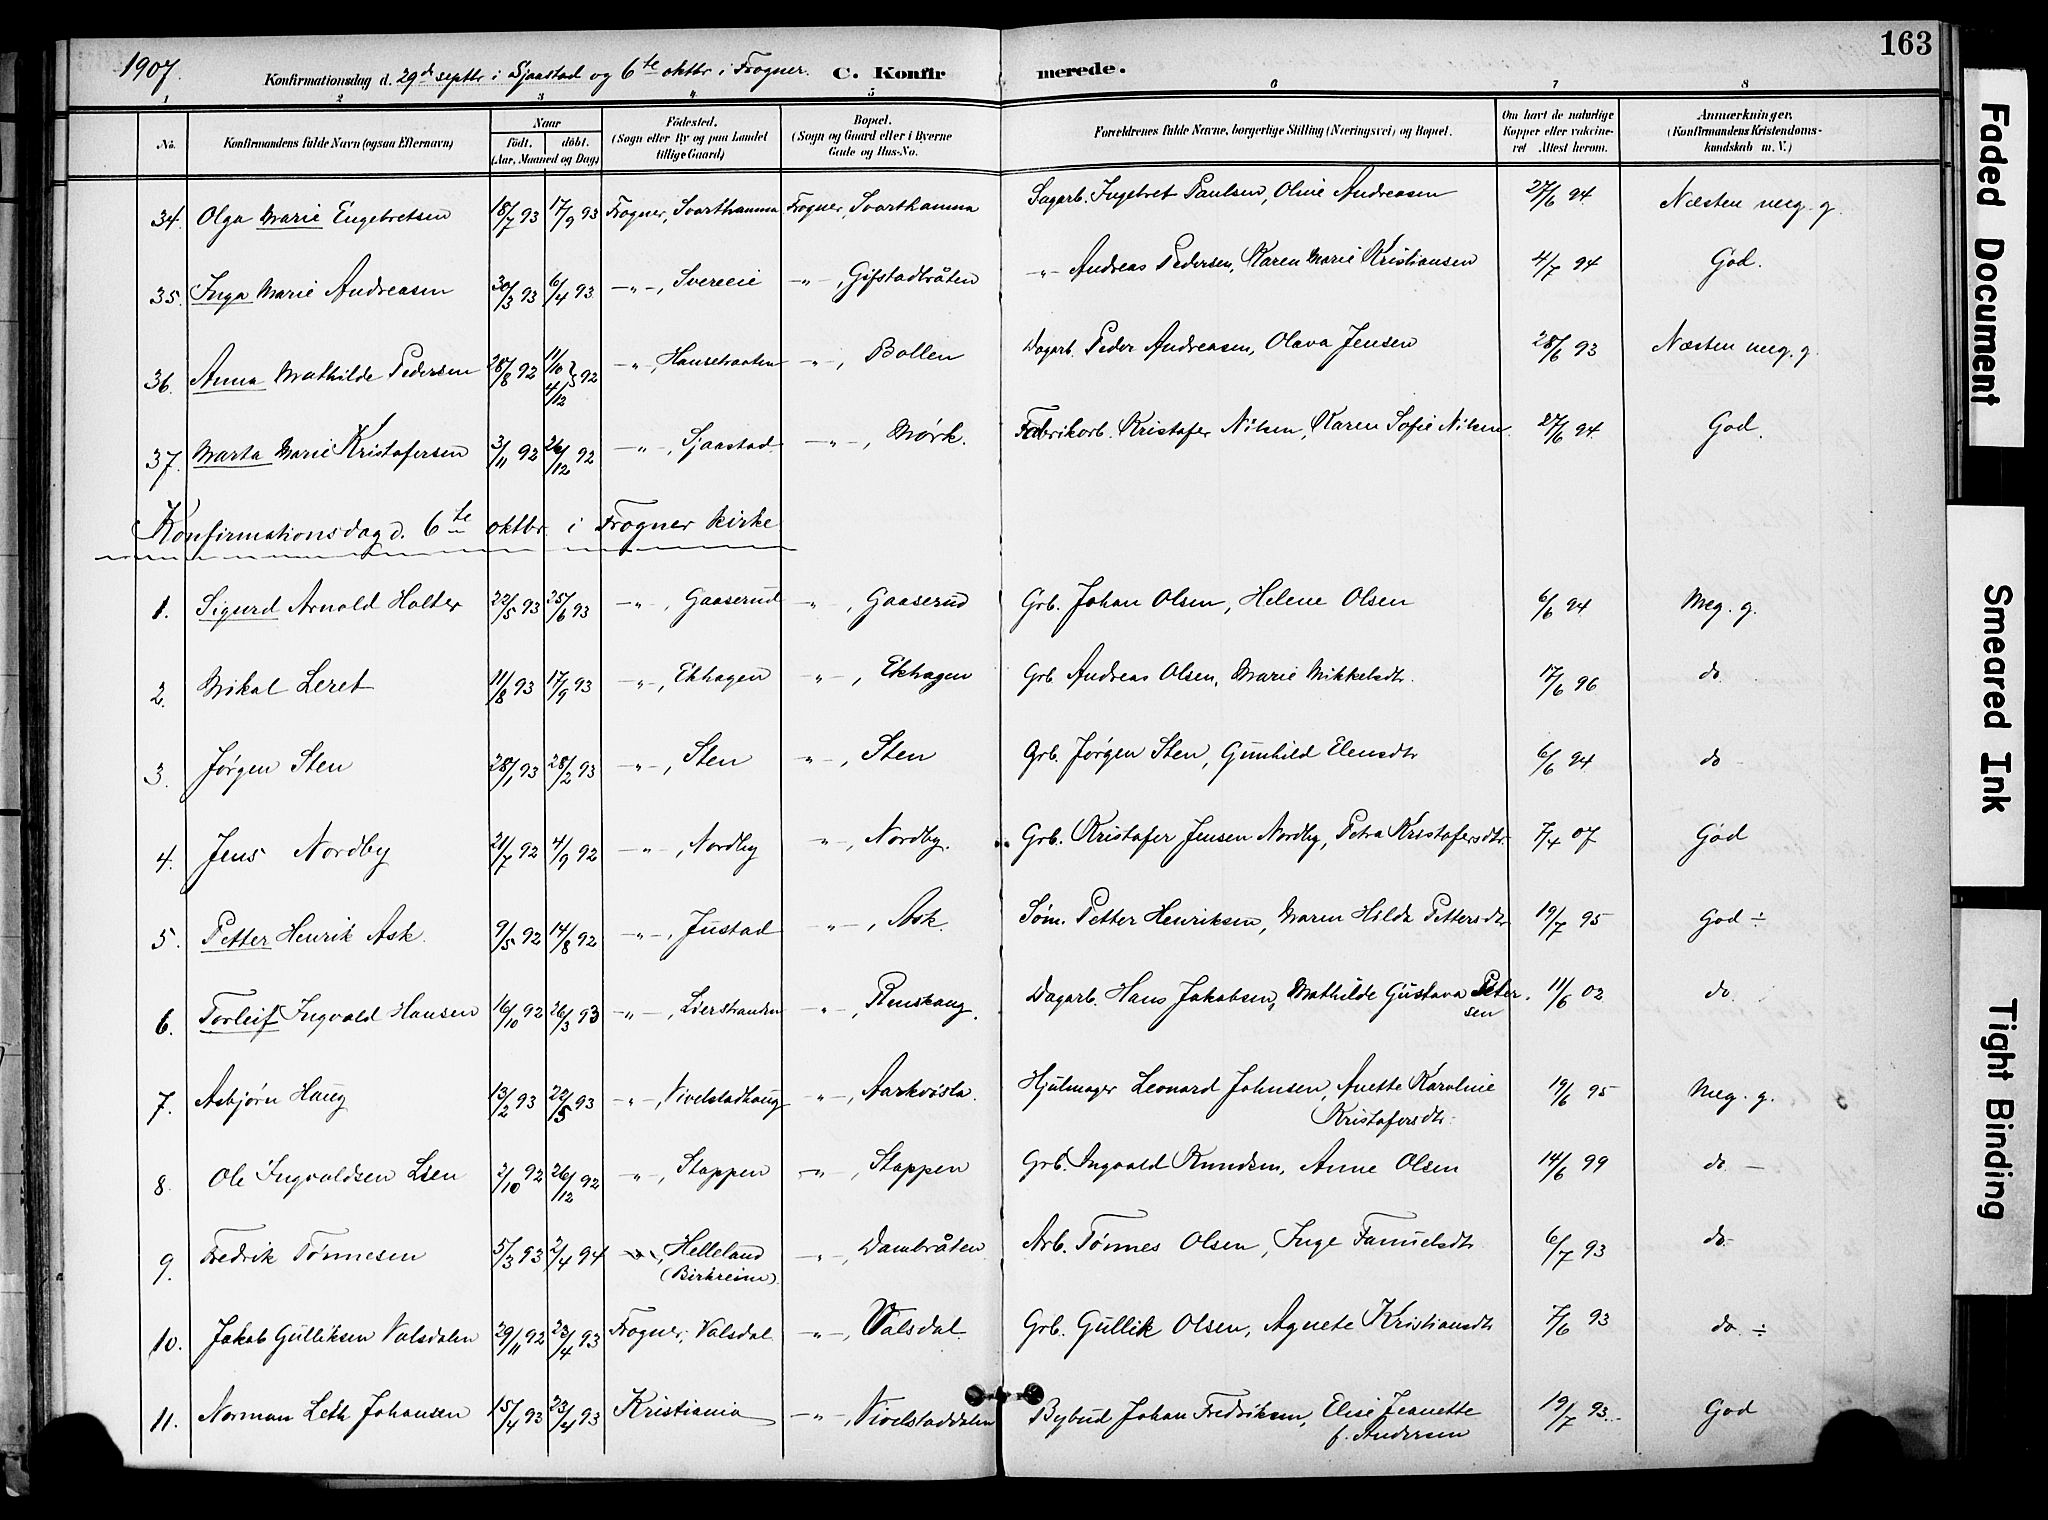 163
1907.
Konfirmationsdag d. 29de septbr i Sjaastad og 6te oktbr i Frogner. C. Konfirmerede.
1 2 3 4 5 6 7 8
No. Konfirmandens fulde Navn (ogsaa Efternavn) Naar födt. döbt. (Aar, Maaned og Dag) Födested. (Sogn eller By og paa Landet tillige Gaard) Bopæl. (Sogn og Gaard eller i Byerne Gade og Hus-No. Forældrenes fulde Navne, borgerlige Stilling (Næringsvei) og Bopæl. Om havt de naturlige Kopper eller vaksineret Attest herom. Anmærkninger. (Konfirmandens Kristendomskundskab m. V.)
34. Olga Marie Engebretsen 18/7 93 17/9 93 Frogner, Svarthamma Frogner, Svarthamma Sagarb. Ingebret Paulsen, Oline Andreasen 27/6 94. Næsten meg. g.
35. Inga Marie Andreasen 30/3 93 6/4 93 -"-, Svereeie -"-, Gifstadbråten -"- Andreas Pedersen, Karen Marie Kristiansen 4/7 94 God.
36. Anna Mathilde Pedersen 28/8 92 11/10 4/12 } 92 -"-, Hansebraaten -"-, Bollen Dagarb. Peder Andreasen, Olava Jensen 28/6 93 Næsten meg. g.
37. Marta Marie Kristofersen 3/11 92 26/12 92 -"-, Sjaastad -"-, Mørk. Fabrikarb. Kristofer Nilsen, Karen Sofie Nilsen 27/6 94. God.
Konfirmationsdag d. 6te oktbr. i Frogner kirke
1. Sigurd Arnold Holter 22/5 93 25/6 93 -"-, Gaaserud -"-, Gaaserud Grb. Johan Olsen, Helene Olsen 6/6 94 Meg. g.
2. Mikal Leret 11/8 93 17/9 93 -"-, Ekhagen -"-, Ekhagen Grb Andreas Olsen, Marie Mikkelsdtr. 17/6 96 do
3. Jørgen Sten 28/1 93 28/2 93 -"-, Sten -"-, Sten Grb. Jørgen Sten, Gunhild Elensdtr 6/6 94 do
4. Jens Nordby 21/7 92 4/9 92 -"-, Nordby -"-, Nordby. Grb. Kristofer Jensen Nordby, Petra Kristofersdtr. 7/4 07 God
5. Petter Henrik Ask. 9/5 92 14/8 92 -"-, Justad -"-, Ask. Søm. Petter Henriksen, Maren Hilda Pettersdtr 19/7 95 God ÷
6. Torleif Ingvald Hansen 16/10 92 26/3 93 -"-, Lierstranden -"-, Renskaug. Dagarb. Hans Jakobsen, Mathilde Gustava Petersen 11/6 02 do.
7. Asbjørn Haug 13/2 93 22/5 93 -"-, Vivelstadhaug -"-, Aarkvisla. Hjulmager Leonard Johnsen, Anette Karoline Kristofersdtr. 19/6 95 Meg. g.
8 Ole Ingvaldsen Lien 2/10 92 26/12 92 -"-, Stoppen -"-, Stoppen Grb. Ingvald Knudsen, Anne Olsen 14/6 99 do -
9. Fredrik Tønnesen 5/3 93 2/4 94 Helleland (Birkreim) -"-, Dambråten Arb. Tønnes Olsen, Inge Samuelsdtr 6/7 93 do.
10. Jakob Gulliksen Valsdalen 29/11 92 23/4 93 Frogner, Valsdal -"-, Valsdal. Grb. Gullik Olsen, Agnete Kristiansdtr 7/6 93 do. ÷
11. Norman Leth Johansen 15/4 93 23/4 93 Kristiania -"-, Vivelstaddalen Bybud Johan Fredriksen, Elise Jeanette f. Andersen 19/7 93. God
Faded Document
Smeared Ink
Tight Binding